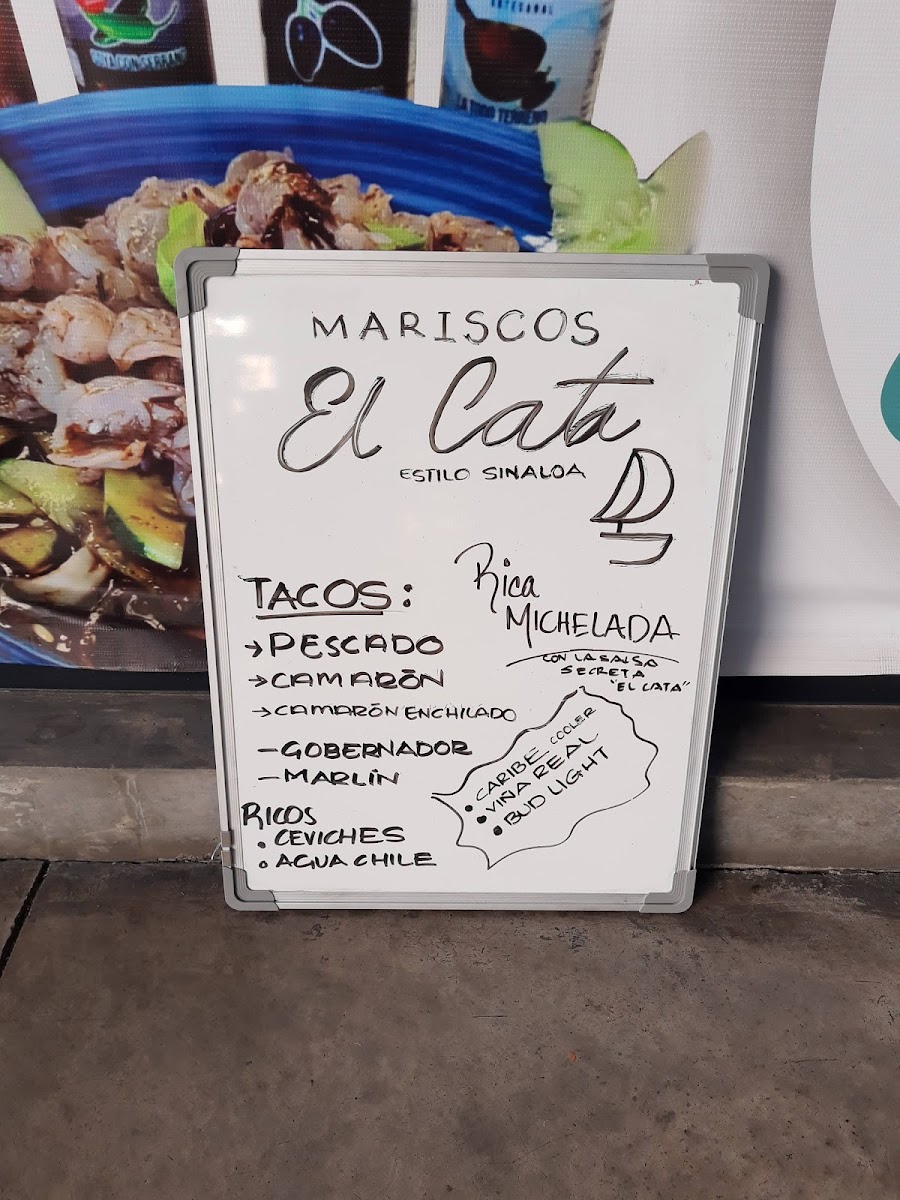 ARTESANAL
LA TODO TERRENO
MARISCOS
El Cata
ESTILO SINALOA
TACOS:
→PESCADO
→CAMARÓN
→CAMARÓN ENCHILADO
-GOBERNADOR
-MARLÍN
RICOS
• CEVICHES
• AGUA CHILE
Rica
MICHELADA
CON LA SALSA
SECRETA
"EL CATA"
• CARIBE COOLER
• VIÑA REAL
• BUD LIGHT